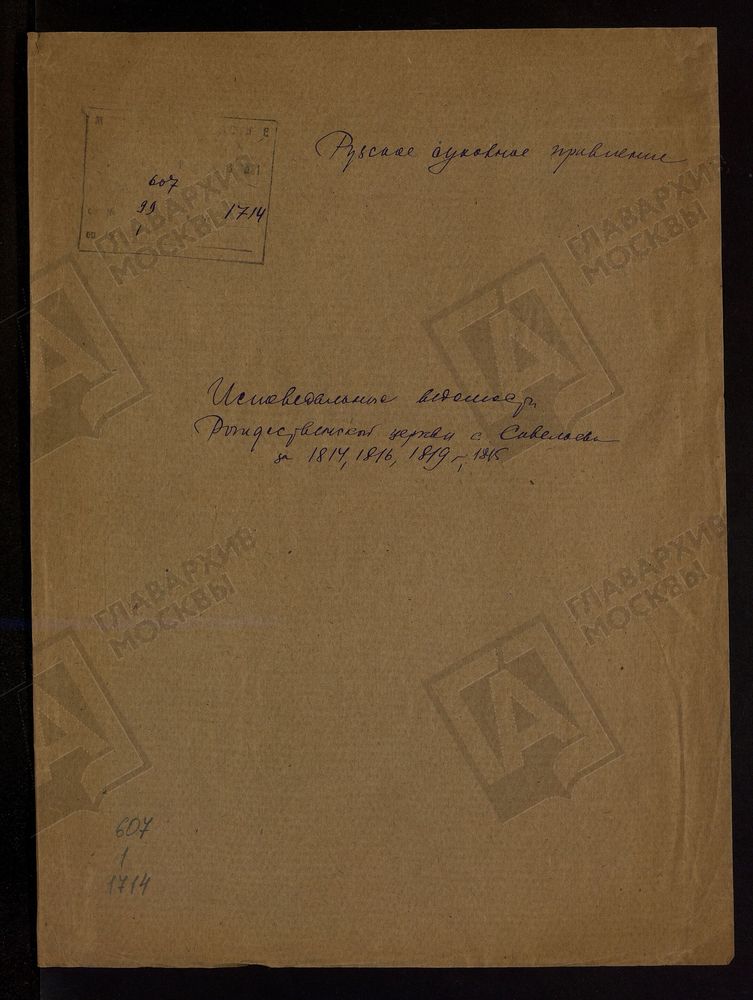 Рузское духовное правление
607
99
1714
1
Исповедальные ведомости
Рождественской церкви с. Савелово
за 1814, 1816, 1819 г., 1815
607
1
1714
ГЛАВАРХИВ
МОСКВЫ
ГЛАВАРХИВ
МОСКВЫ
ГЛАВАРХИВ
МОСКВЫ
ГЛАВАРХИВ
МОСКВЫ